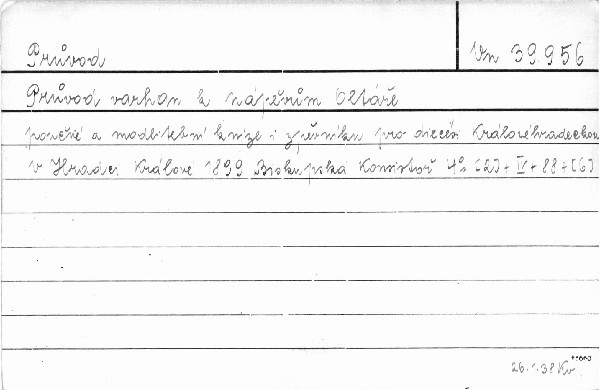 Průvod Vn 39.956
Průvod varhan k nápěvům Oltáře
poučné a modlitební knize i zpěvníku pro diecési Královéhradeckou
v Hradci Králové 1899 Biskupská Konsistoř 4° [2] + IV + 88 + [6]
26.1.38 Kv